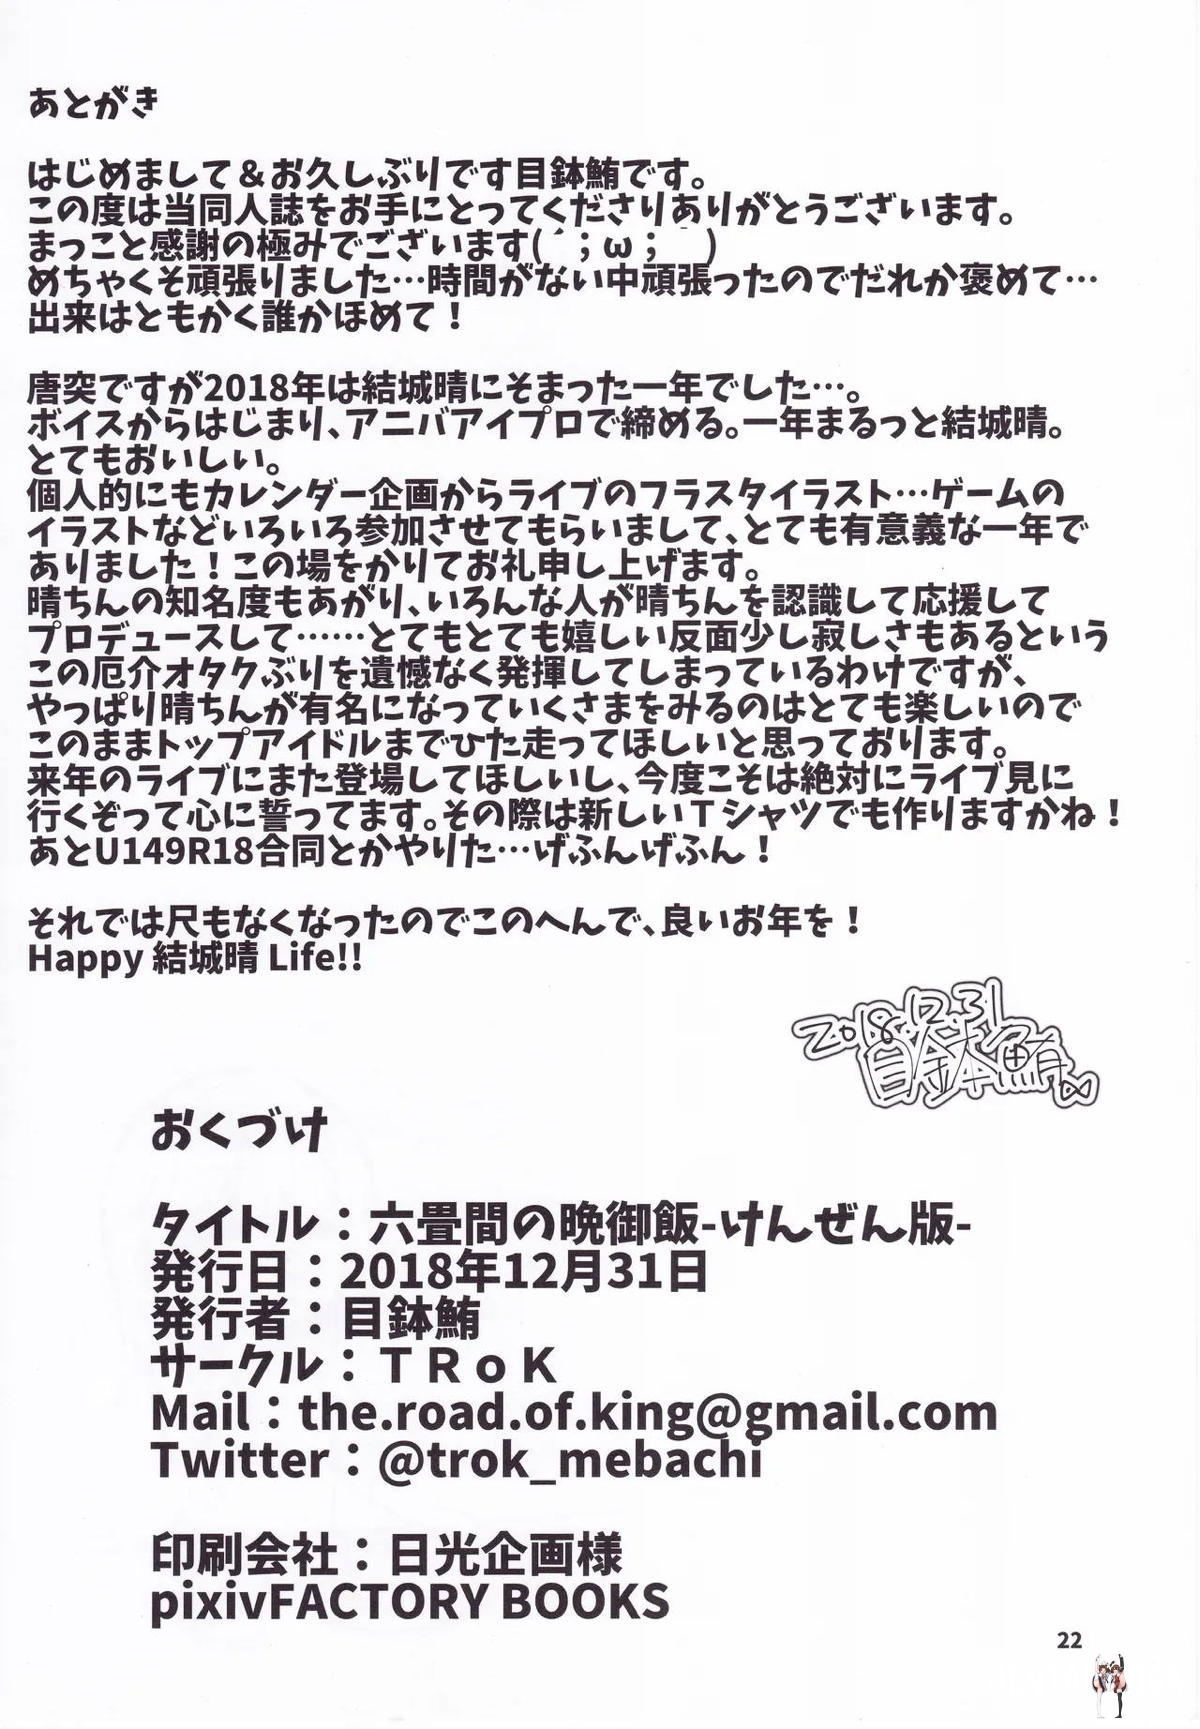 あとがき
はじめまして＆お久しぶりです目鉢鮪です。
この度は当同人誌をお手にとってくださりありがとうございます。
まっこと感謝の極みでございます(´；ω；｀)
めちゃくそ頑張りました…時間がない中頑張ったのでだれか褒めて…
出来はともかく誰かほめて！
唐突ですが2018年は結城晴にそまった一年でした…。
ボイスからはじまり、アニバアイプロで締める。一年まるっと結城晴。
とてもおいしい。
個人的にもカレンダー企画からライブのフラスタイラスト…ゲームの
イラストなどいろいろ参加させてもらいまして、とても有意義な一年で
ありました！この場をかりてお礼申し上げます。
晴ちんの知名度もあがり、いろんな人が晴ちんを認識して応援して
プロデュースして……とてもとても嬉しい反面少し寂しさもあるという
この厄介オタクぶりを遺憾なく発揮してしまっているわけですが、
やっぱり晴ちんが有名になっていくさまをみるのはとても楽しいので
このままトップアイドルまでひた走ってほしいと思っております。
来年のライブにまた登場してほしいし、今度こそは絶対にライブ見に
行くぞって心に誓ってます。その際は新しいＴシャツでも作りますかね！
あとU149R18合同とかやりた…げふんげふん！
それでは尺もなくなったのでこのへんで、良いお年を！
Happy 結城晴 Life!!
2018.12.31
目鉢鮪
おくづけ
タイトル：六畳間の晩御飯-けんぜん版-
発行日：2018年12月31日
発行者：目鉢鮪
サークル：ＴＲｏＫ
Mail：the.road.of.king@gmail.com
Twitter：@trok_mebachi
印刷会社：日光企画様
pixivFACTORY BOOKS
22